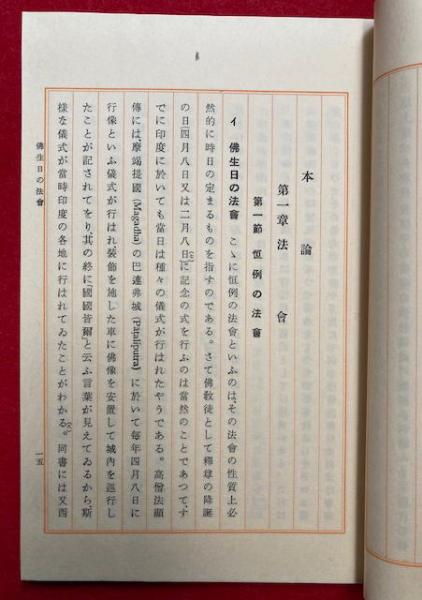 本論
第一章 法會
第一節 恒例の法會
イ 佛生日の法會 こゝに恒例の法會といふのは、その法會の性質上必
然的に時日の定まるものを指すのである。さて佛敎徒として釋尊の降誕
の日(四月八日又は二月八日)に記念の式を行ふのは當然のことであつて、す
でに印度に於いても當日は種々の儀式が行はれたやうである。高僧法顯
傳には、摩竭提國(Magadha)の巴連弗城(Pāṭaliputra)に於いて每年四月八日に
行像といふ儀式が行はれ、裝飾を施した車に佛像を安置して城內を巡行し
たことが記されてをり、其の終に「國國皆爾」と云ふ言葉が見えてゐるから、斯
樣な儀式が當時印度の各地に行はれてゐたことがわかる。同書には又西
佛生日の法會
一五